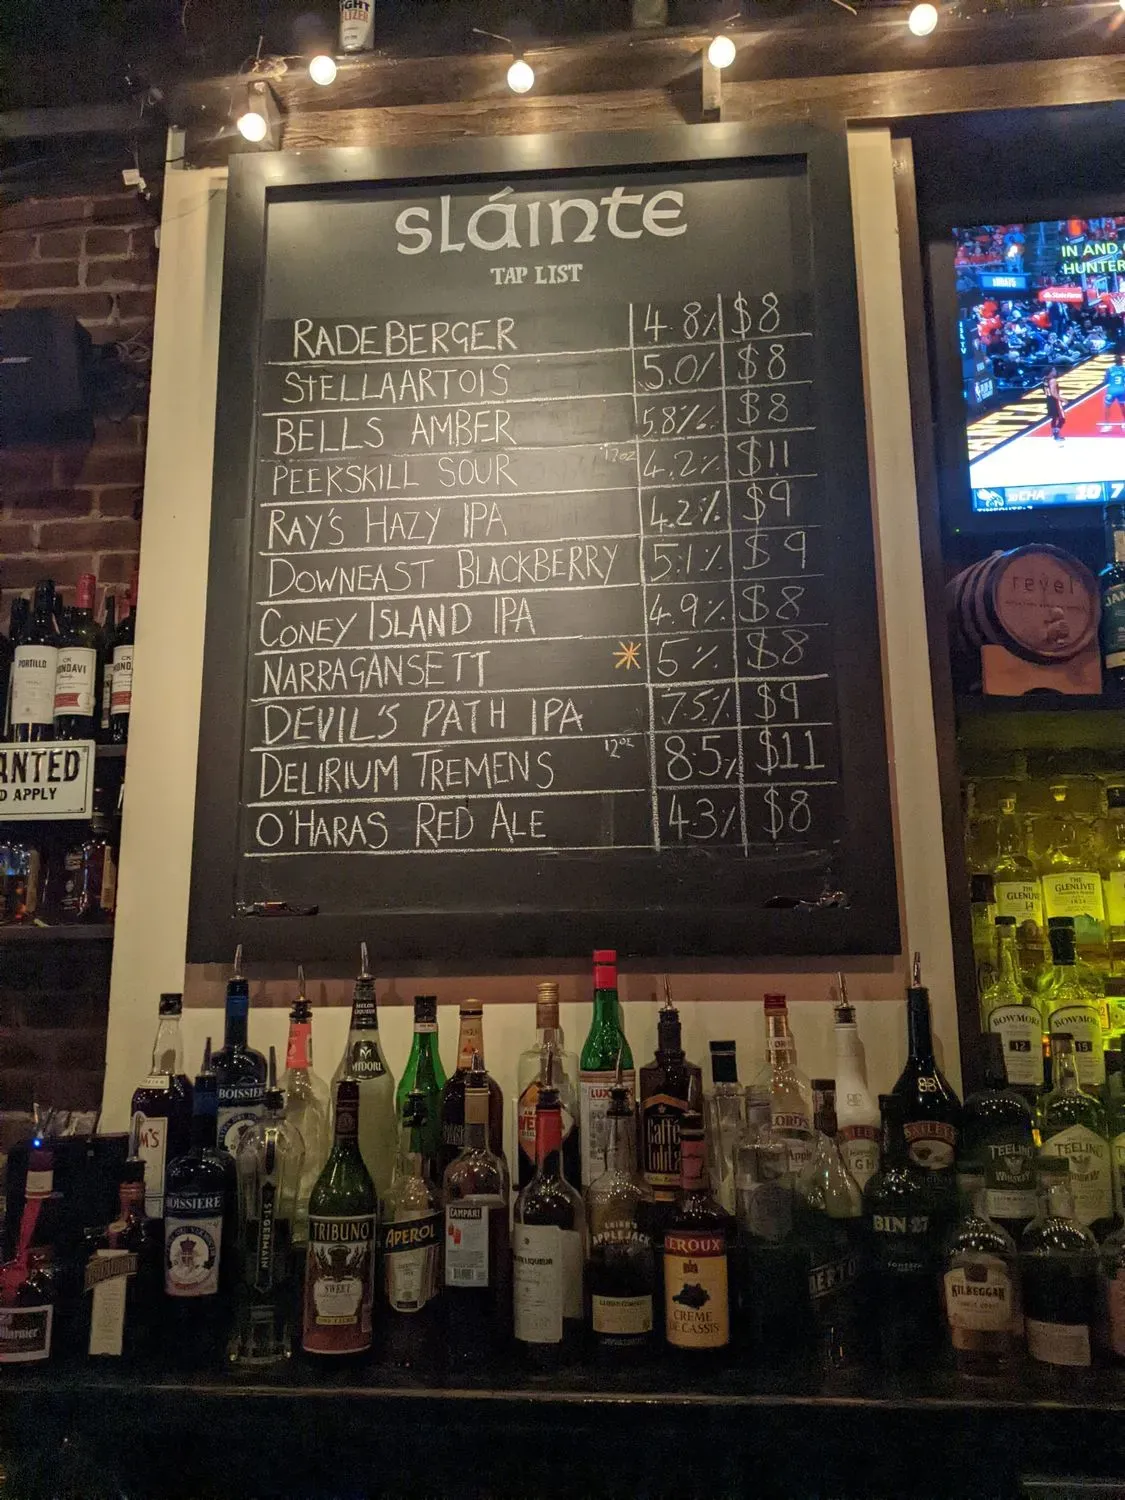 sláinte
TAP LIST
RADEBERGER 4.8% $8
STELLAARTOIS 5.0% $8
BELLS AMBER 5.8% $8
PEEKSKILL SOUR 12oz 4.2% $11
RAY'S HAZY IPA 4.2% $9
DOWNEAST BLACKBERRY 5.1% $9
CONEY ISLAND IPA 4.9% $8
NARRAGANSETT 5% $8
DEVIL'S PATH IPA 7.5% $9
DELIRIUM TREMENS 12oz 8.5% $11
O'HARAS RED ALE 4.3% $8
IN AND
HUNTER
StateFarm
CHA 10 7
revel
PORTILLO
CK
ONDAVI
ANTED
D APPLY
THE
GLENLIVET
BOWMORE
12
BOWMORE
15
MELON
LIQUEUR
MIDORI
BOISSIERE
BOISSIERE
M'S
LUX
ST GERMAIN
TRIBUNO
SWEET
APEROL
CAMPARI
LIQUEUR
LAIRD'S
APPLEJACK
LEROUX
CREME
DE CASSIS
BAILEYS
BIN 27
FONSECA
TEELING
WHISKEY
TEELING
KILBEGGAN